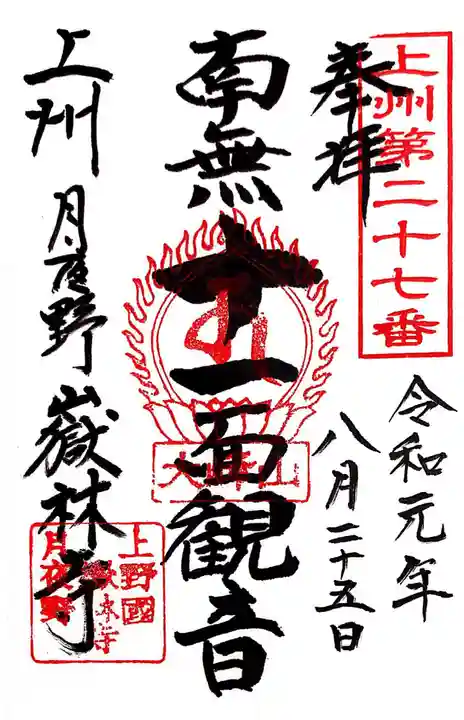 上州第二十七番
奉拝
令和元年
八月二十五日
南無十一面観音
上州月夜野嶽林寺
上野國
嶽林寺
月夜野